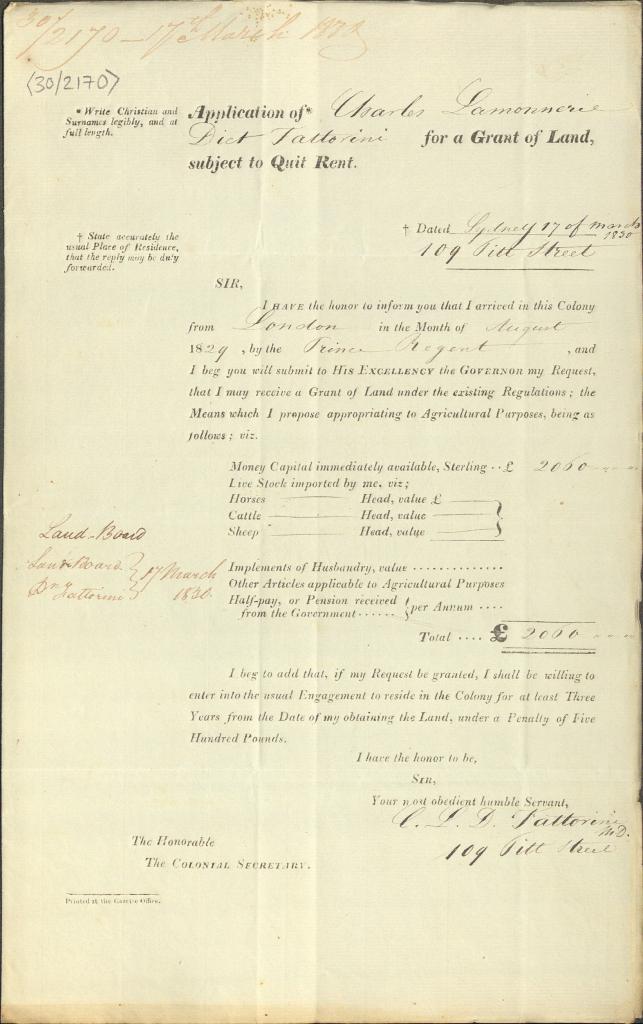 30/2170 — 17th March 1830
(30/2170)
* Write Christian and
Surnames legibly, and at
full length.
Application of* Charles Lamonnerie
Dict Fattorini for a Grant of Land,
subject to Quit Rent.
† State accurately the
usual Place of Residence,
that the reply may be duly
forwarded.
† Dated Sydney 17 of March
1830
109 Pitt Street
SIR,
I HAVE the honor to inform you that I arrived in this Colony
from London in the Month of August
1829, by the Prince Regent, and
I beg you will submit to HIS EXCELLENCY the GOVERNOR my Request,
that I may receive a Grant of Land under the existing Regulations; the
Means which I propose appropriating to Agricultural Purposes, being as
follows; viz.
Money Capital immediately available, Sterling ·· £ 2060
Live Stock imported by me, viz;
Horses Head, value £
Cattle Head, value
Sheep Head, value
Land-Board
Land Board
Dr Fattorini } 17 March
1830.
Implements of Husbandry, value ··············
Other Articles applicable to Agricultural Purposes
Half-pay, or Pension received
from the Government ······ } per Annum ····
Total ···· £ 2060
I beg to add that, if my Request be granted, I shall be willing to
enter into the usual Engagement to reside in the Colony for at least Three
Years from the Date of my obtaining the Land, under a Penalty of Five
Hundred Pounds.
I have the honor to be,
SIR,
Your most obedient humble Servant,
C. L. D. Fattorini
M.D.
109 Pitt Street
The Honorable
The COLONIAL SECRETARY.
Printed at the Gazette Office.